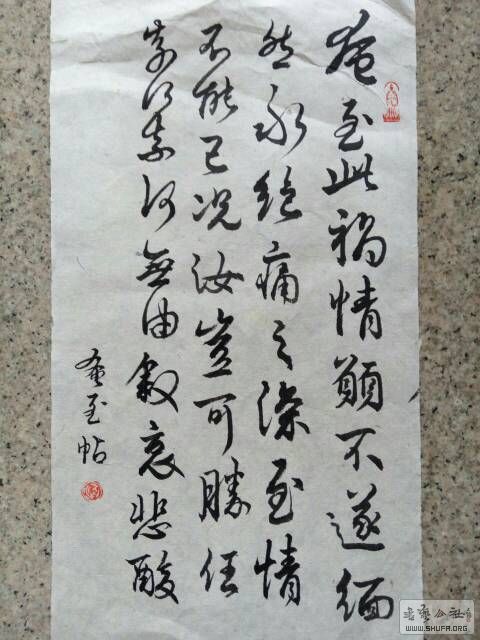 奄至此禍情願不遂緬
然永絶痛之深至情
不能已况汝豈可勝任
奈何奈何無由叙哀悲酸
奄至帖
書藝公社
WWW.SHUFA.ORG